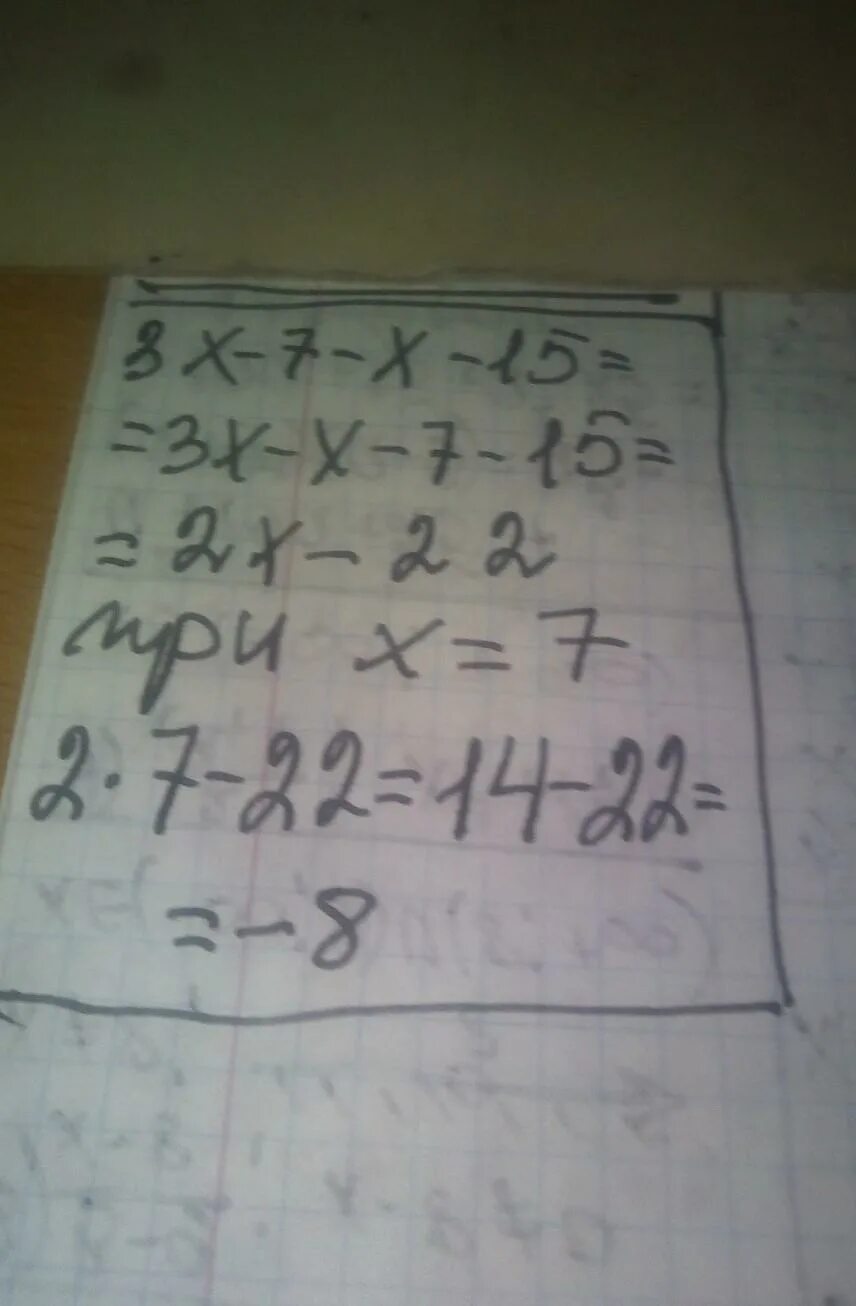 3x-7-x-15=
=3x-x-7-15=
=2x-22
при x=7
2·7-22=14-22=
=-8